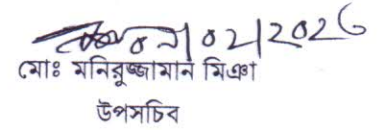 ০৭/02/2026
মোঃ মনিরুজ্জামান মিঞা
উপসচিব